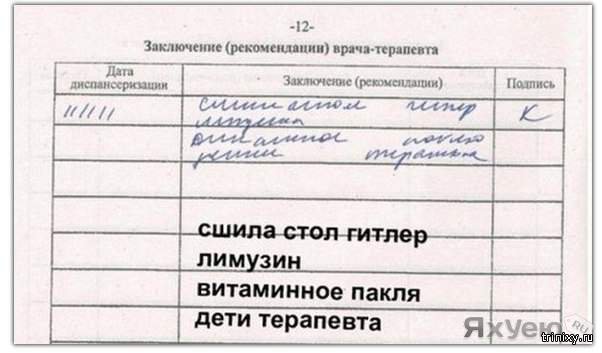 -12-
Заключение (рекомендации) врача-терапевта
Дата диспансеризации
Заключение (рекомендации)
Подпись
11/11/11
К
сшила стол гитлер
лимузин
витаминное пакля
дети терапевта
ЯхУею.RU
trinixy.ru